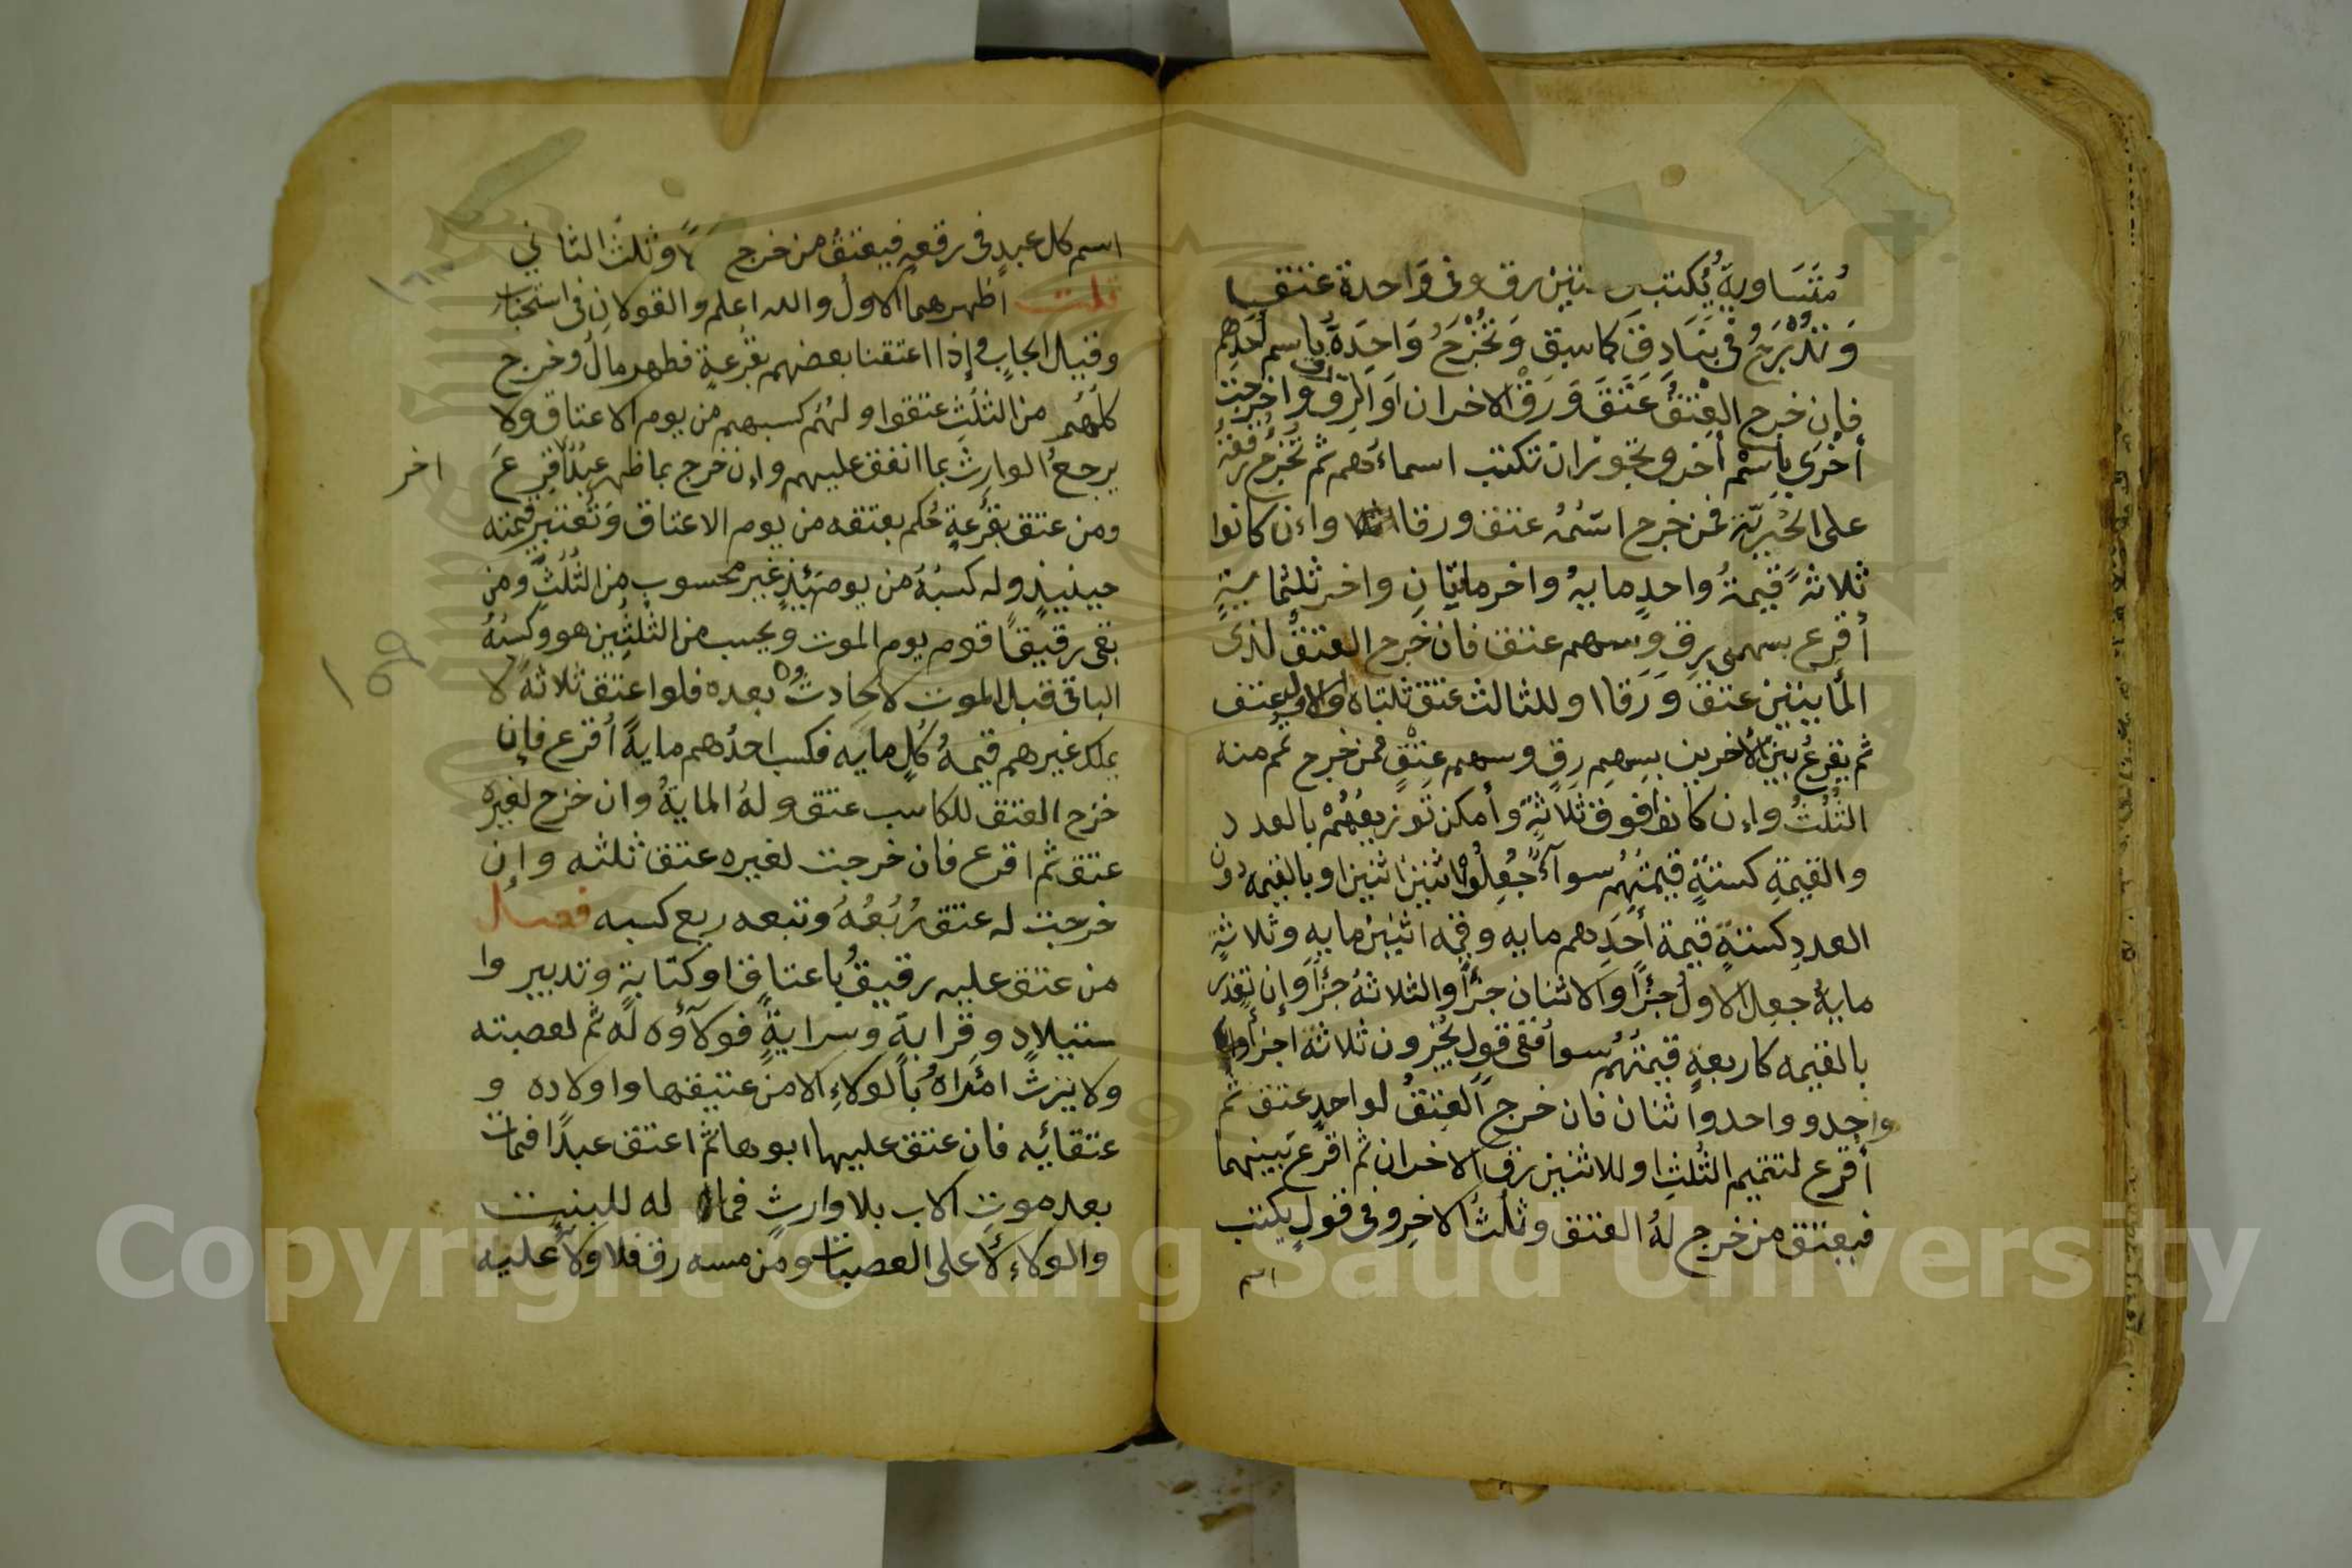 متساوية يكتب في ثنتين رق وفي واحدة عتق
وتدرج في بنادق كما سبق وتخرج واحدة باسم أحدهم
فإن خرج العتق عتق ورق الاخران او الرق رق واخرجت
أخرى باسم أخر ويجوز ان تكتب اسماءهم ثم تخرج رقعة
على الحرية فمن خرج اسمه عتق ورقا وإن كانوا
ثلاثة قيمة واحد ماية واخر مايتان واخر ثلثماية
أقرع بسهمى رق وسهم عتق فان خرج العتق لذى
المايتين عتق ورقا او للثالث عتق ثلثاه او للاول عتق
ثم يقرع بين الأخرين بسهم رق وسهم عتق فمن خرج تمم منه
الثلث وإن كانوا فوق ثلاثة وأمكن توزيعهم بالعدد
والقيمة كستة قيمتهم سوآء جعلوا اثنين اثنين او بالقيمه دون
العدد كستة قيمة أحدهم مايه وقيمه اثنين مايه وثلاثة
ماية جعل الاول جزأ والاثنان جزأ والثلاثة جزأ وإن تعذر
بالقيمه كاربعة قيمتهم سوأ ففى قول يجزون ثلاثة اجزأ
واحد وواحد واثنان فان خرج العتق لواحد عتق ثم
أقرع لتتميم الثلث او للاثنين رق الاخران ثم اقرع بينهما
فيعتق من خرج له العتق وثلث الاخر وفى قول يكتب
اسم
اسم كل عبد فى رقعة فيعتق من خرج أولا وثلث الثاني
قلت أظهرهما الاول والله اعلم والقولان فى استحباب
وقيل ايجاب وإذا اعتقنا بعضهم بقرعة فظهر مال وخرج
كلهم من الثلث عتقوا ولهم كسبهم من يوم الاعتاق ولا
يرجع الوارث بما انفق عليهم وإن خرج بما ظهر عبد اقرع
اخر
ومن عتق بقرعة حكم بعتقه من يوم الاعتاق وتعتبر قيمته
حينيذ وله كسبه من يومئذ غير محسوب من الثلث ومن
بقى رقيقا قوم يوم الموت ويحسب من الثلثين هو وكسبه
الباقى قبل الموت لا لحادث بعده فلو اعتق ثلاثة لا
يملك غيرهم قيمة كل مايه فكسب احدهم ماية أقرع فإن
خرج العتق للكاسب عتق وله الماية وان خرج لغيره
عتق ثم اقرع فان خرجت لغيره عتق ثلثه وإن
خرجت له عتق ربعه وتبعه ربع كسبه فصل
من عتق عليه رقيق باعتاق او كتابة وتدبير وا
ستيلاد وقرابة وسراية فولآؤه له ثم لعصبته
ولا يرث امراة بالولاء الا من عتيقها واولاده و
عتقائيه فان عتق عليها ابوها ثم اعتق عبدا فمات
بعد موت الاب بلا وارث فما له للبنت
والولاء لأعلى العصبات ومن مسه رق فلا ولآ عليه
١٦٠
١٥٩
Copyright © King Saud University